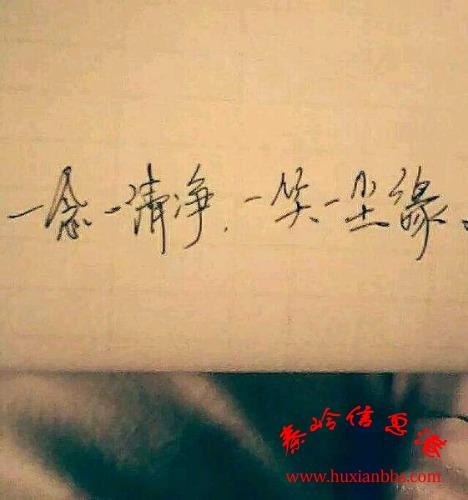 一念一清净，一笑一尘缘。
秦岭信息港
www.huxianbbs.com